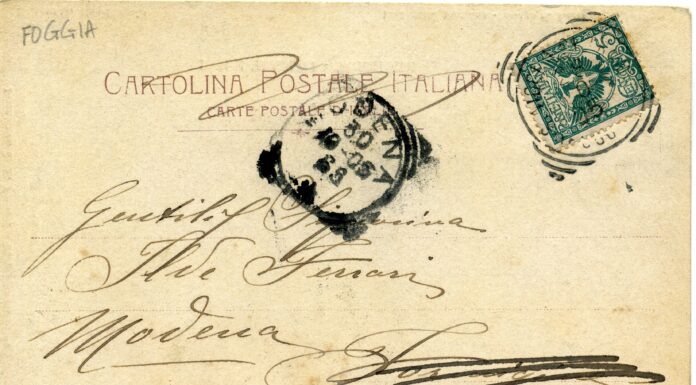 FOGGIA
CARTOLINA POSTALE ITALIANA
CARTE POSTALE
MODENA
10-05
Gentilis Signorina
Ilde Ferrari
Modena